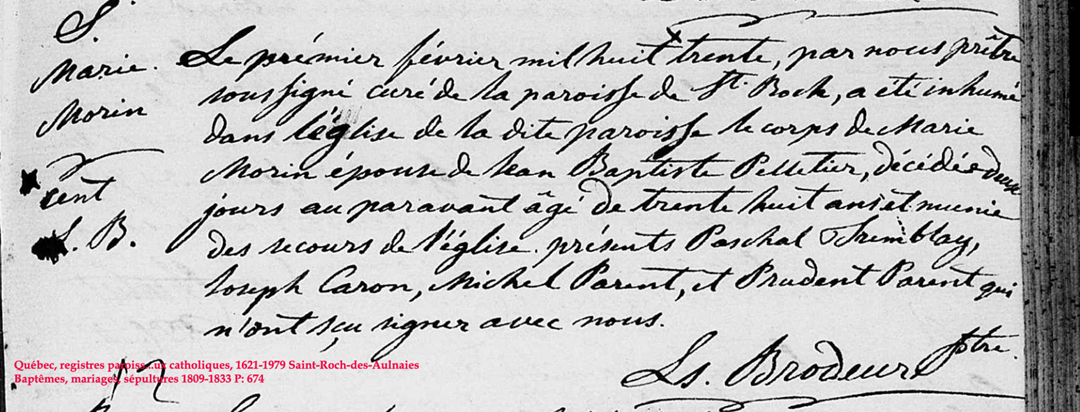 S.
Marie
Morin
x
cent
L. B.
Le prémier février mil huit x trente, par nous prêtre
soussigné curé de la paroisse de St. Roch, a été inhumé
dans l'église de la dite paroisse le corps de Marie
Morin épouse de Jean Baptiste Pelletier, décédée deux
jours au paravant âgé de trente huit ans et munie
des secours de l'église. présents Paschal Tremblay,
Joseph Caron, Michel Parent, et Prudent Parent qui
n'ont sçu signer avec nous.
Ls. Brodeur ptre.
Québec, registres paroiss...ux catholiques, 1621-1979 Saint-Roch-des-Aulnaies
Baptêmes, mariages, sépultures 1809-1833 P: 674